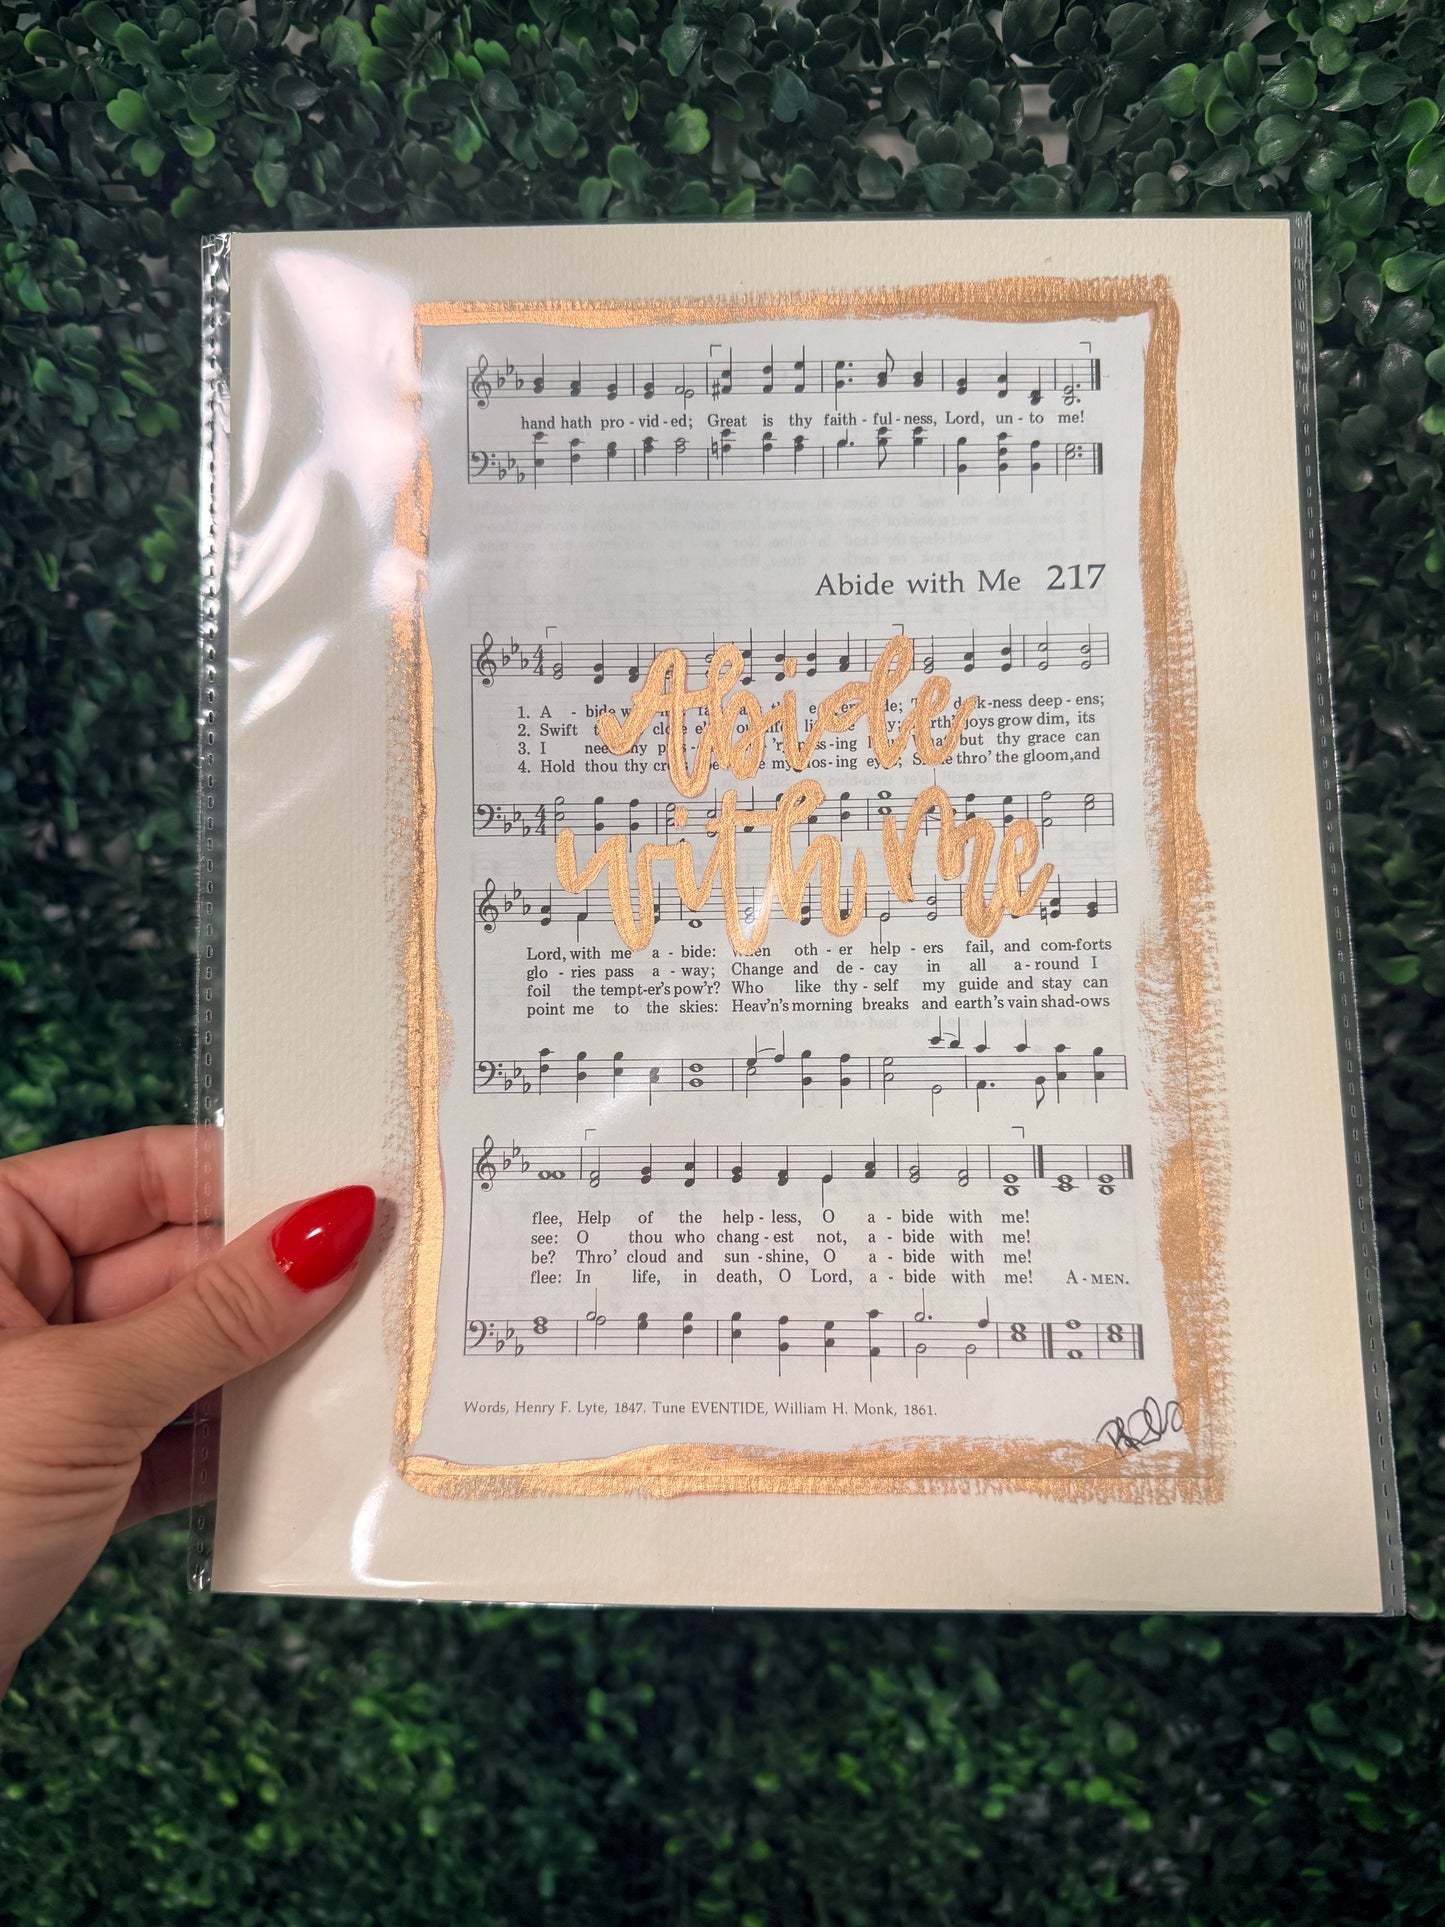 hand hath pro - vid - ed; Great is thy faith - ful - ness, Lord, un - to me!
Abide with Me 217
4
4
1. A - bide
dark-ness deep - ens;
2. Swift
earth's joys grow dim, its
3. I need thy
pass-ing hour; What but thy grace can
4. Hold thou thy cross
my clos-ing eyes; Shine thro' the gloom, and
Abide
with me
4
4
Lord, with me a - bide: When oth - er help - ers fail, and com-forts
glo - ries pass a - way; Change and de - cay in all a - round I
foil the tempt-er's pow'r? Who like thy - self my guide and stay can
point me to the skies: Heav'n's morning breaks and earth's vain shad-ows
flee, Help of the help - less, O a - bide with me!
see: O thou who chang - est not, a - bide with me!
be? Thro' cloud and sun - shine, O a - bide with me!
flee: In life, in death, O Lord, a - bide with me! A - MEN.
Words, Henry F. Lyte, 1847. Tune EVENTIDE, William H. Monk, 1861.